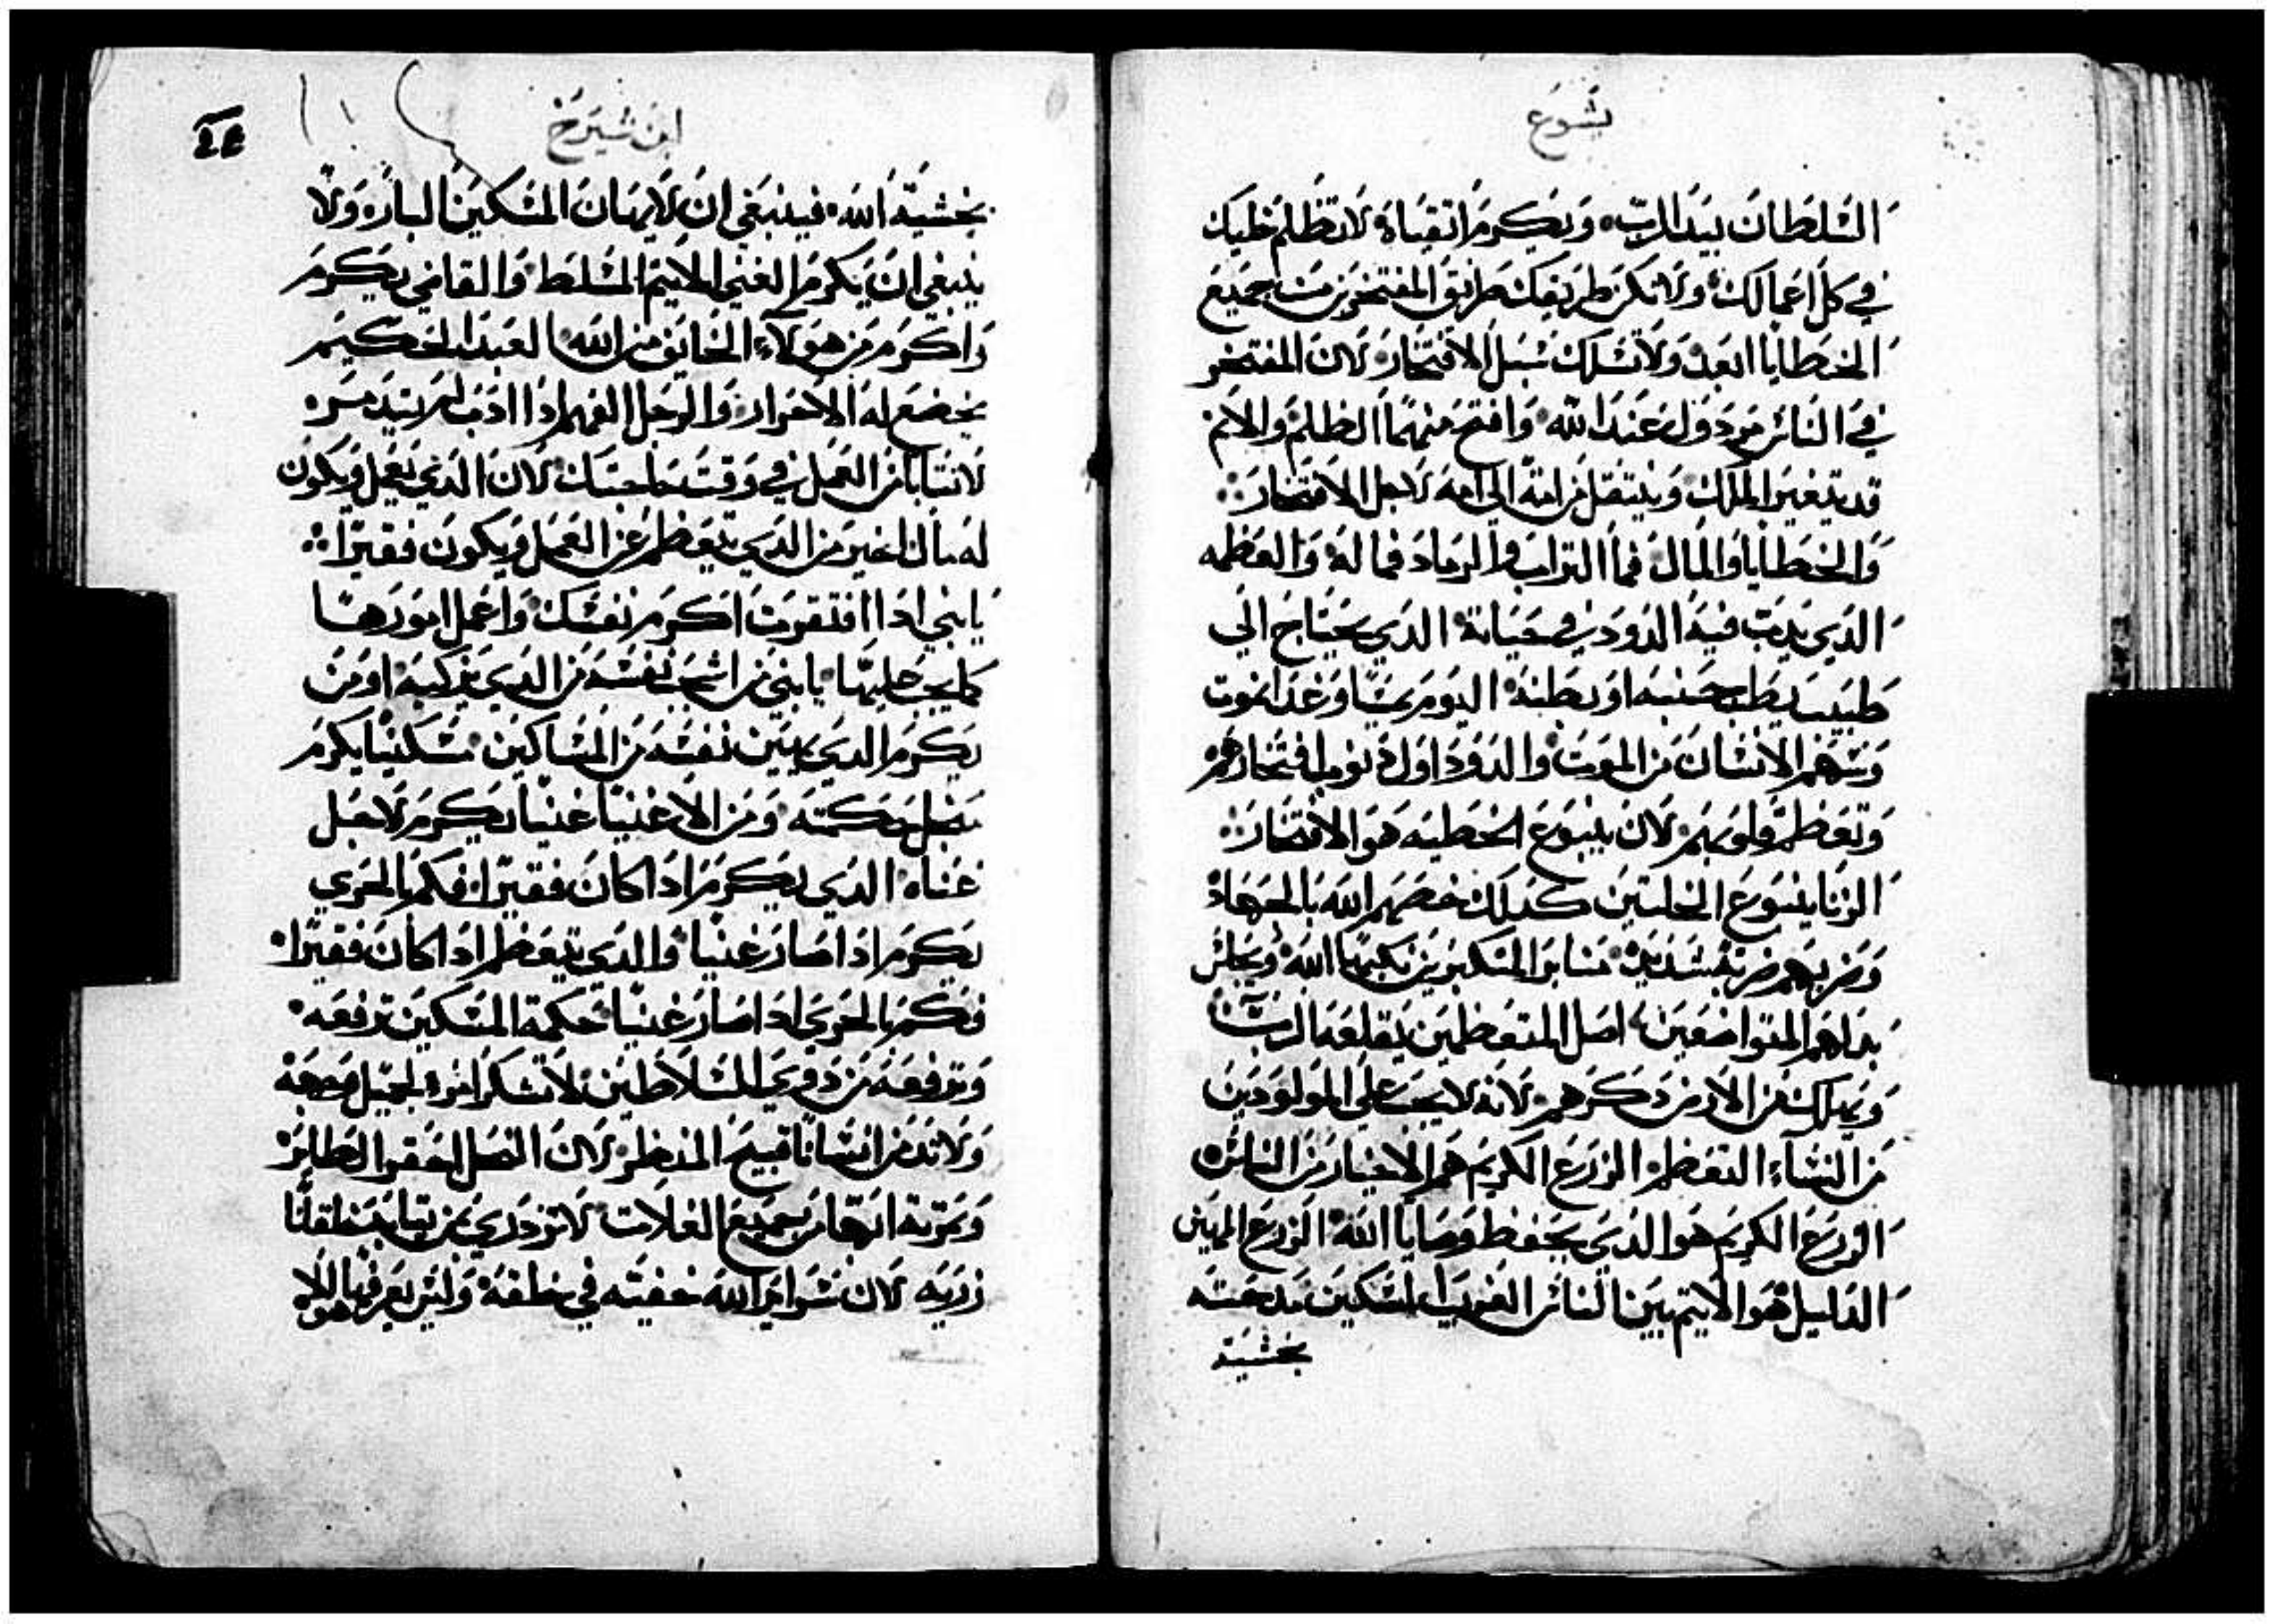 يشوع
السلطان بيد الرب، ويكرم اتقياه لا تظلم خليلك
في كل اعمالك، ولا تكن طريقك طرايق المفتخرين من جميع
الخطايا ابعد، ولا تسلك سبل الافتخار، لان المفتخر
في الناس مردول عند الله، وافتح منهما الظلم والاتم
قد يتغير الملك، وينتقل من امة الى امه لاجل الافتخار
والخطايا والمال، فما التراب والرماد فما له، والعظمه
الذي يدب فيه الدود في حياته، الذي يحتاج الى
طبيب يطب جنبه او بطنه، اليوم يمسا وغدا يموت
وسهم الانسان من الموت، والدود اول
وتعظم قلوبهم، لان ينبوع الخطيه هو الافتخار
الزنا ينبوع الخلتين كدلك خصهم الله بالجهاد
وضربهم ضربة شديدة، منابر المتكبرين يكبها الله، ويجلس
بدلهم المتواضعين، اصل المتعظمين يقلعه الرب
ويهلك من الارض دكرهم، لانه لا يجب على المولودين
من النساء التعظم، الزرع الكريم هم الاخيار من الناس
الزرع الكريم هو الدي يحفظ وصايا الله، الزرع المهين
الدليل هو الاتيم بين الناس الغريب المسكين مدحته
بخشية
ابن شيرخ
بخشية الله، فينبغي ان لا يهان المسكين البار، ولا
ينبغي ان يكرم الغني الاتيم المسلط، والقاضي يكرم
واكرم من هولاء الخايف من الله، العبد الحكيم
يخضع له الاحرار، والرجل الفهم ادا ادب لم يتدمر
لا تتابا من العمل في وقت حاجتك، لان الدي يعمل ويكون
له مال اخير من الدي يتعظم عن العمل ويكون فقيرا
يا بني ادا افتقرت اكرم نفسك، واعمل امورها
كما يجب عليها، يا بني من اشجب نفسه من الدي يزكيه، او من
يكرم الدي يهين نفسه من المساكين، مسكينا يكرم
بفضل حكمته، ومن الاغنيا غنيا يكرم لاجل
غناه، الدي يكرم ادا كان فقيرا، فكم بالحري
يكرم ادا صار غنيا، والدي يتعظم ادا كان فقيرا
فكم بالحري ادا صار غنيا، حكمة المسكين ترفعه
وترفعه من دوي السلاطين، لا تشكر امرو لجميل وجهه
ولا تدم انسانا قبيح المنظر، لان النحل احقر الطاير
وتمرته ارتفا من جميع الغلات، لا تزدري بمن تيابه خلقانا
زريه، لان سراير الله خفيته في خلقه، وليس يعرفها الا هو